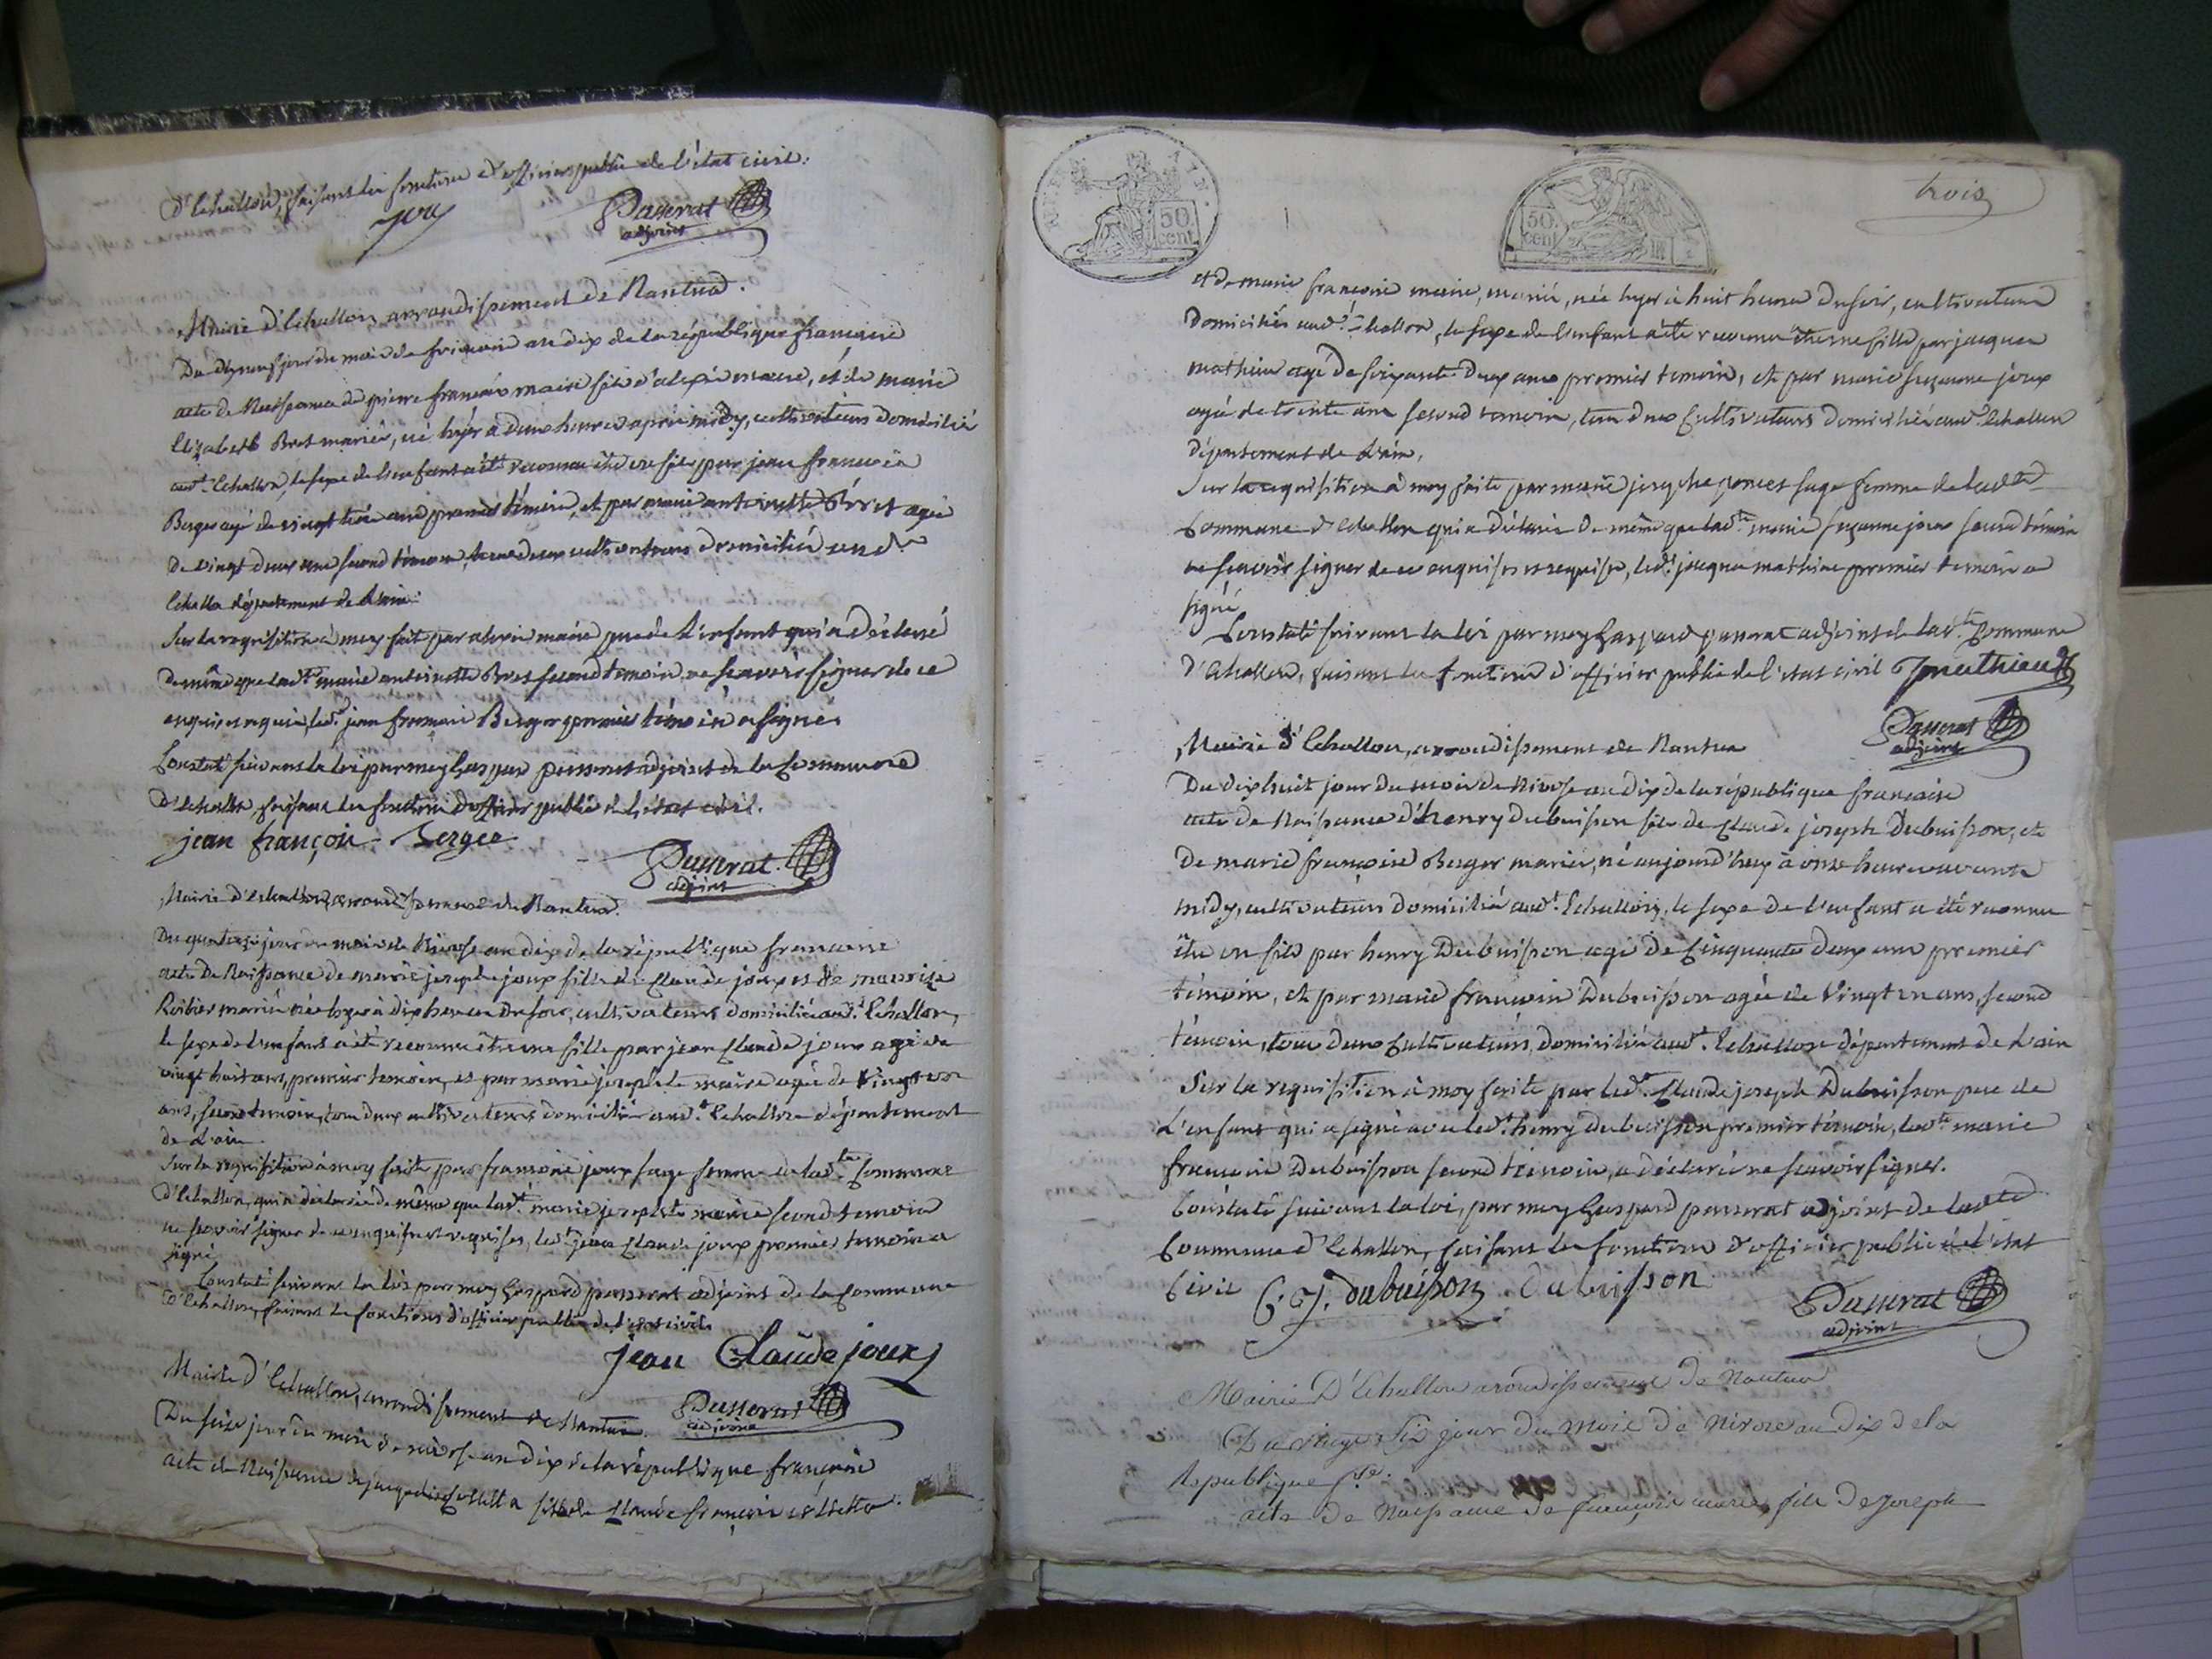 d'Echallon, faisant les fonctions d'officier public de l'état civil.
joux
Passerat
adjoint
Mairie d'Echallon arrondissement de Nantua.
Du dixneuf jour du mois de frimaire an dix de la république française
acte de Naissance de pierre françois maire fils d'alexis maire, et de marie
Elizabeth Bret mariés, né hyer à deux heures après midy, cultivateurs domicilié
aud.t Echallon, le sexe de l'enfant a été reconnu être un fils par jean françois
Berger agé de vingt trois ans premier témoin, et par marie antoinette Brét agée
de vingt deux ans second témoin, tous deux cultivateurs domicilié aud.t
Echallon département de L'ain.
Sur la requisition à moy fait par alexis maire père de L'enfant qui a déclaré
de même que lad.te marie antoinette Bret second témoin ne sçavoir signer de ce
enquis et requis, led.t jean françois Berger premier témoin a signé.
Constaté suivant la loi par moy Gaspard passerat adjoint de la Commune
d'Echallon, faisant les fonctions d'officier public de l'état civil.
jean françois Berger
Passerat
adjoint
Mairie d'Echallon, arrondissement de Nantua.
Du quatorze jour du mois de Nivose an dix de la république française
acte de Naissance de marie josephe joux fille de Claude joux et de maurise
mariés née hyer à dix heures du soir, cultivateurs domicilié aud.t Echallon,
le sexe de l'enfant a été reconnu être une fille par jean Claude joux agé de
vingt huit ans, premier témoin, et par marie josephte maire agée de vingt un
ans, second témoin, tous deux cultivateurs domicilié aud.t Echallon département
de L'ain.
Sur la requisition à moy faite par françoise joux sage femme de lad.te Commune
d'Echallon, qui a déclaré de même que lad.te marie josephte maire second témoin
ne sçavoir signer de ce enquises et requises, led.t jean Claude joux premier témoin a
signé
Constaté suivant la loi par moy Gaspard passerat adjoint de la Commune
d'Echallon, faisant les fonctions d'officier public de l'état civil.
jean Claude joux
Passerat
adjoint
Mairie d'Echallon, arrondissement de Nantua.
Du seize jour du mois de nivose an dix de la république française
acte de Naissance de jacqueline fille de Claude françois
50 cent
50. cent
trois
et de marie françoise maire, mariés, née hyer à huit heures du soir, cultivateurs
domiciliés aud.t Echallon, le sexe de l'enfant a été reconnu être une fille par jacques
mathieu agé de soixante deux ans premier témoin, et par marie suzanne joux
agée de trente ans second témoin, tous deux Cultivateurs domicilié aud.t Echallon
département de L'ain.
Sur la requisition à moy faite par marie josephe poncet sage femme de lad.te
Commune d'Echallon qui a déclaré de même que lad.te marie suzanne joux second témoin
ne sçavoir signer de ce enquises et requises, led.t jacques mathieu premier témoin a
signé
Constaté suivant la loi par moy Gaspard passerat adjoint de lad.te Commune
d'Echallon, faisant les fonctions d'officier public de l'état civil J mathieu
Passerat
adjoint
Mairie d'Echallon, arrondissement de Nantua
Du dix huit jour du mois de Nivose an dix de la république française
acte de Naissance d'henry Dubuisson fils de Claude joseph Dubuisson, et
de marie françoise Berger mariés, né aujourd'huy à onze heures avant
midy, cultivateurs domicilié aud.t Echallon, le sexe de l'enfant a été reconnu
être un fils par henry Dubuisson agé de Cinquante deux ans premier
témoin, et par marie françoise Dubuisson agée de Vingt un ans, second
témoin, tous deux Cultivateurs, domicilié aud.t Echallon département de L'ain
Sur la requisition à moy faite par led.t Claude joseph Dubuisson père de
L'enfant qui a signé avec led.t henry dubuisson premier témoin, lad.te marie
françoise Dubuisson second témoin, a déclaré ne sçavoir signer.
Constaté suivant la loi, par moy Gaspard passerat adjoint de lad.te
Commune d'Echallon, faisant les fonctions d'officier public de l'état
Civil C. J. dubuisson dubuisson
Passerat
adjoint
Mairie D'Echallon arondissement de Nantua
Du vingt six jour du mois de Nivose an dix de la
Republique f.se.
acte de Naissance de françois marie, fils de Joseph